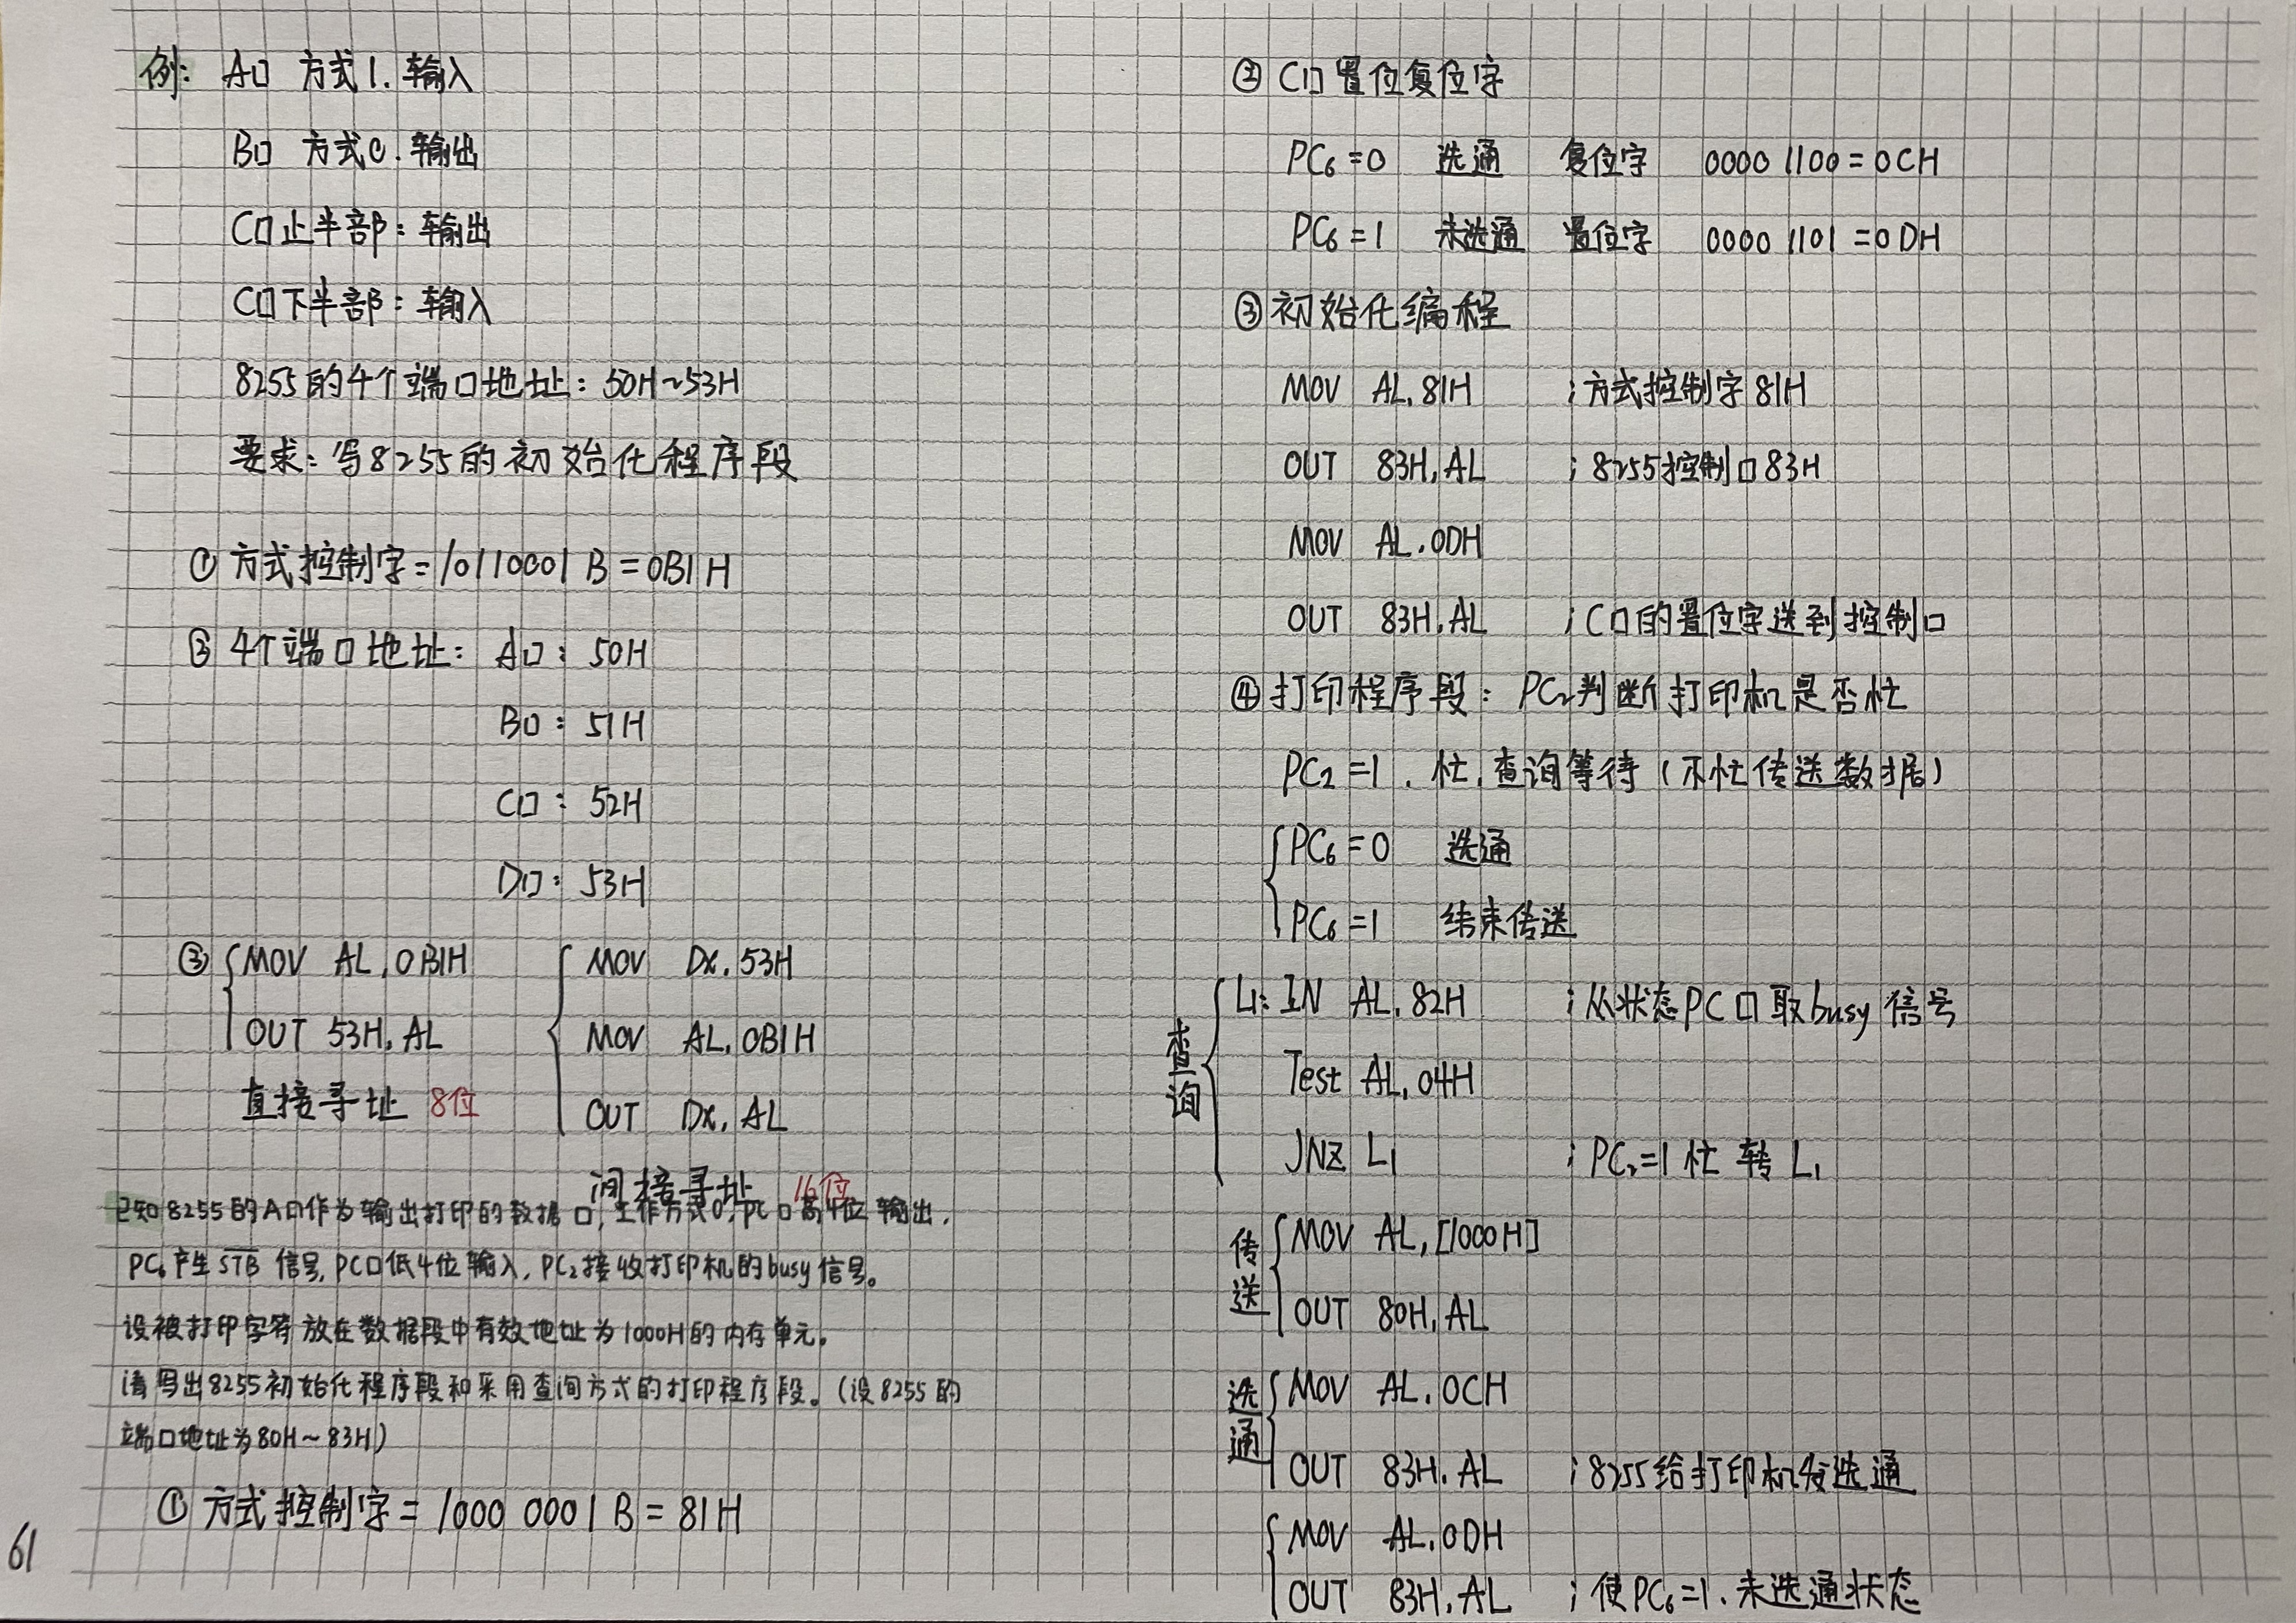 例: A口 方式1. 输入
B口 方式0. 输出
C口上半部: 输出
C口下半部: 输入
8255的4个端口地址: 50H~53H
要求: 写8255的初始化程序段
① 方式控制字=10110001 B = 0B1H
② 4个端口地址: A口: 50H
B口: 51H
C口: 52H
D口: 53H
③ MOV AL, 0B1H
OUT 53H, AL
直接寻址 8位
MOV DX, 53H
MOV AL, 0B1H
OUT DX, AL
间接寻址 16位
已知8255的A口作为输出打印的数据口, 工作方式0, PC口高4位输出,
PC6产生S̅T̅B̅信号, PC口低4位输入, PC2接收打印机的busy信号。
设被打印字符放在数据段中有效地址为1000H的内存单元。
请写出8255初始化程序段和采用查询方式的打印程序段。(设8255的
端口地址为80H~83H)
① 方式控制字 = 1000 0001 B = 81H
61
② C口置位复位字
PC6=0 选通 复位字 0000 1100 = 0CH
PC6=1 未选通 置位字 0000 1101 = 0DH
③ 初始化编程
MOV AL, 81H ;方式控制字81H
OUT 83H, AL ;8255控制口83H
MOV AL, 0DH
OUT 83H, AL ;C口的置位字送到控制口
④ 打印程序段: PC2判断打印机是否忙
PC2=1, 忙, 查询等待 (不忙传送数据)
PC6=0 选通
PC6=1 结束传送
查询
L1: IN AL, 82H ;从状态PC口取busy信号
Test AL, 04H
JNZ L1 ;PC2=1忙 转L1
传送
MOV AL, [1000H]
OUT 80H, AL
选通
MOV AL, 0CH
OUT 83H, AL ;8255给打印机发选通
MOV AL, 0DH
OUT 83H, AL ;使PC6=1, 未选通状态